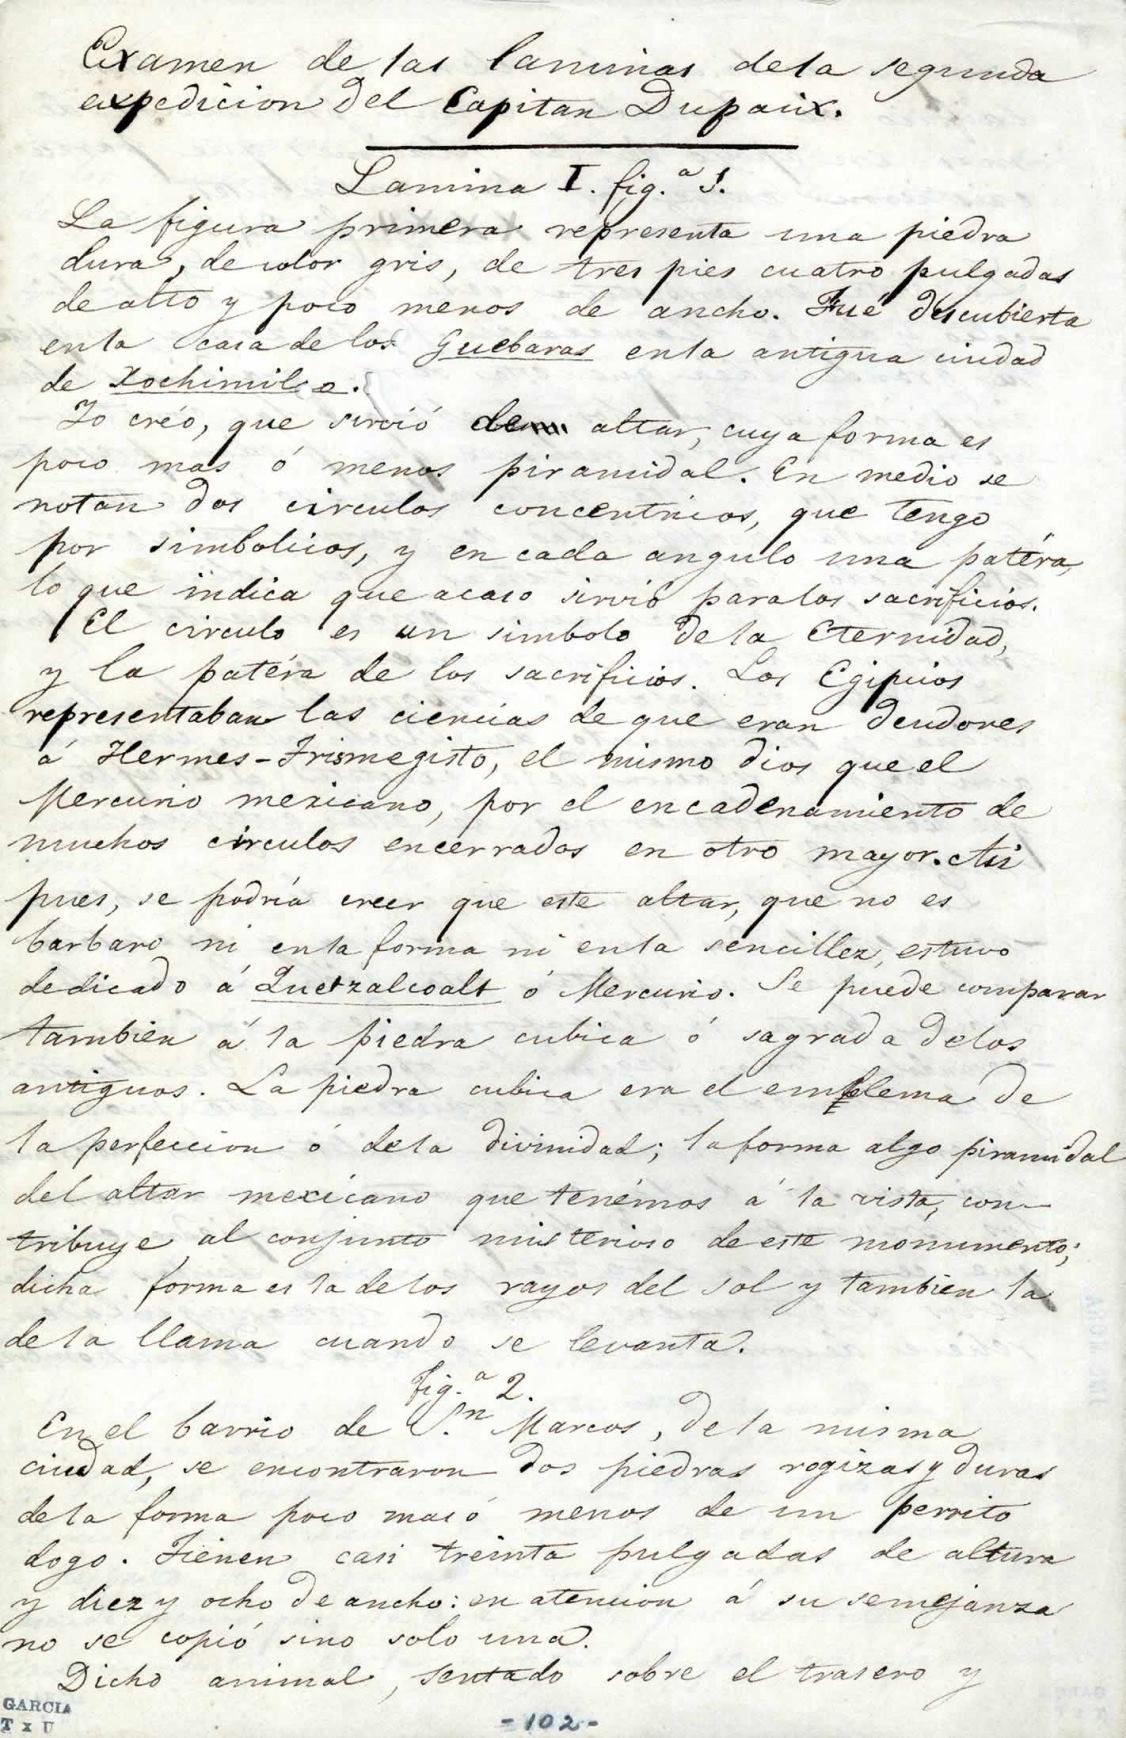 Examen de las laminas dela segunda
expedicion del Capitan Dupaix.
Lamina I. fig.ª 1.
La figura primera representa una piedra
dura, de color gris, de tres pies cuatro pulgadas
de alto y poco menos de ancho. Fué descubierta
enla casa de los Guebaras enla antigua ciudad
de Xochimilco.
Yo créo, que sirvió de altar, cuya forma es
poco mas ó menos piramidal. En medio se
notan dos circulos concentricos, que tengo
por simbolicos, y en cada angulo una patéra,
lo que indica que acaso sirvió paralos sacrificios.
El circulo es un simbolo de la Eternidad,
y la patéra de los sacrificios. Los Egipcios
representaban las ciencias de que eran deudores
á Hermes-Trismegisto, el mismo dios que el
Mercurio mexicano, por el encadenamiento de
muchos circulos encerrados en otro mayor. Asi
pues, se podría creer que este altar, que no es
barbaro ni enla forma ni enla sencillez, estuvo
dedicado á Quetzalcoalt ó Mercurio. Se puede comparar
tambien á la piedra cubica ó sagrada delos
antiguos. La piedra cubica era el emblema de
la perfeccion ó dela divinidad; la forma algo piramidal
del altar mexicano que tenémos á la vista, con-
tribuye al conjunto misterioso de este monumento;
dicha forma es la delos rayos del sol y tambien la
dela llama cuando se levanta.
fig.ª 2.
En el barrio de S.n Marcos, dela misma
ciudad, se encontraron dos piedras rogizas y duras
dela forma poco mas ó menos de un perrito
dogo. Tienen casi treinta pulgadas de altura
y diez y ocho de ancho: en atencion á su semejanza
no se copió sino solo una.
Dicho animal, sentado sobre el trasero y
GARCIA
T x U
-102-